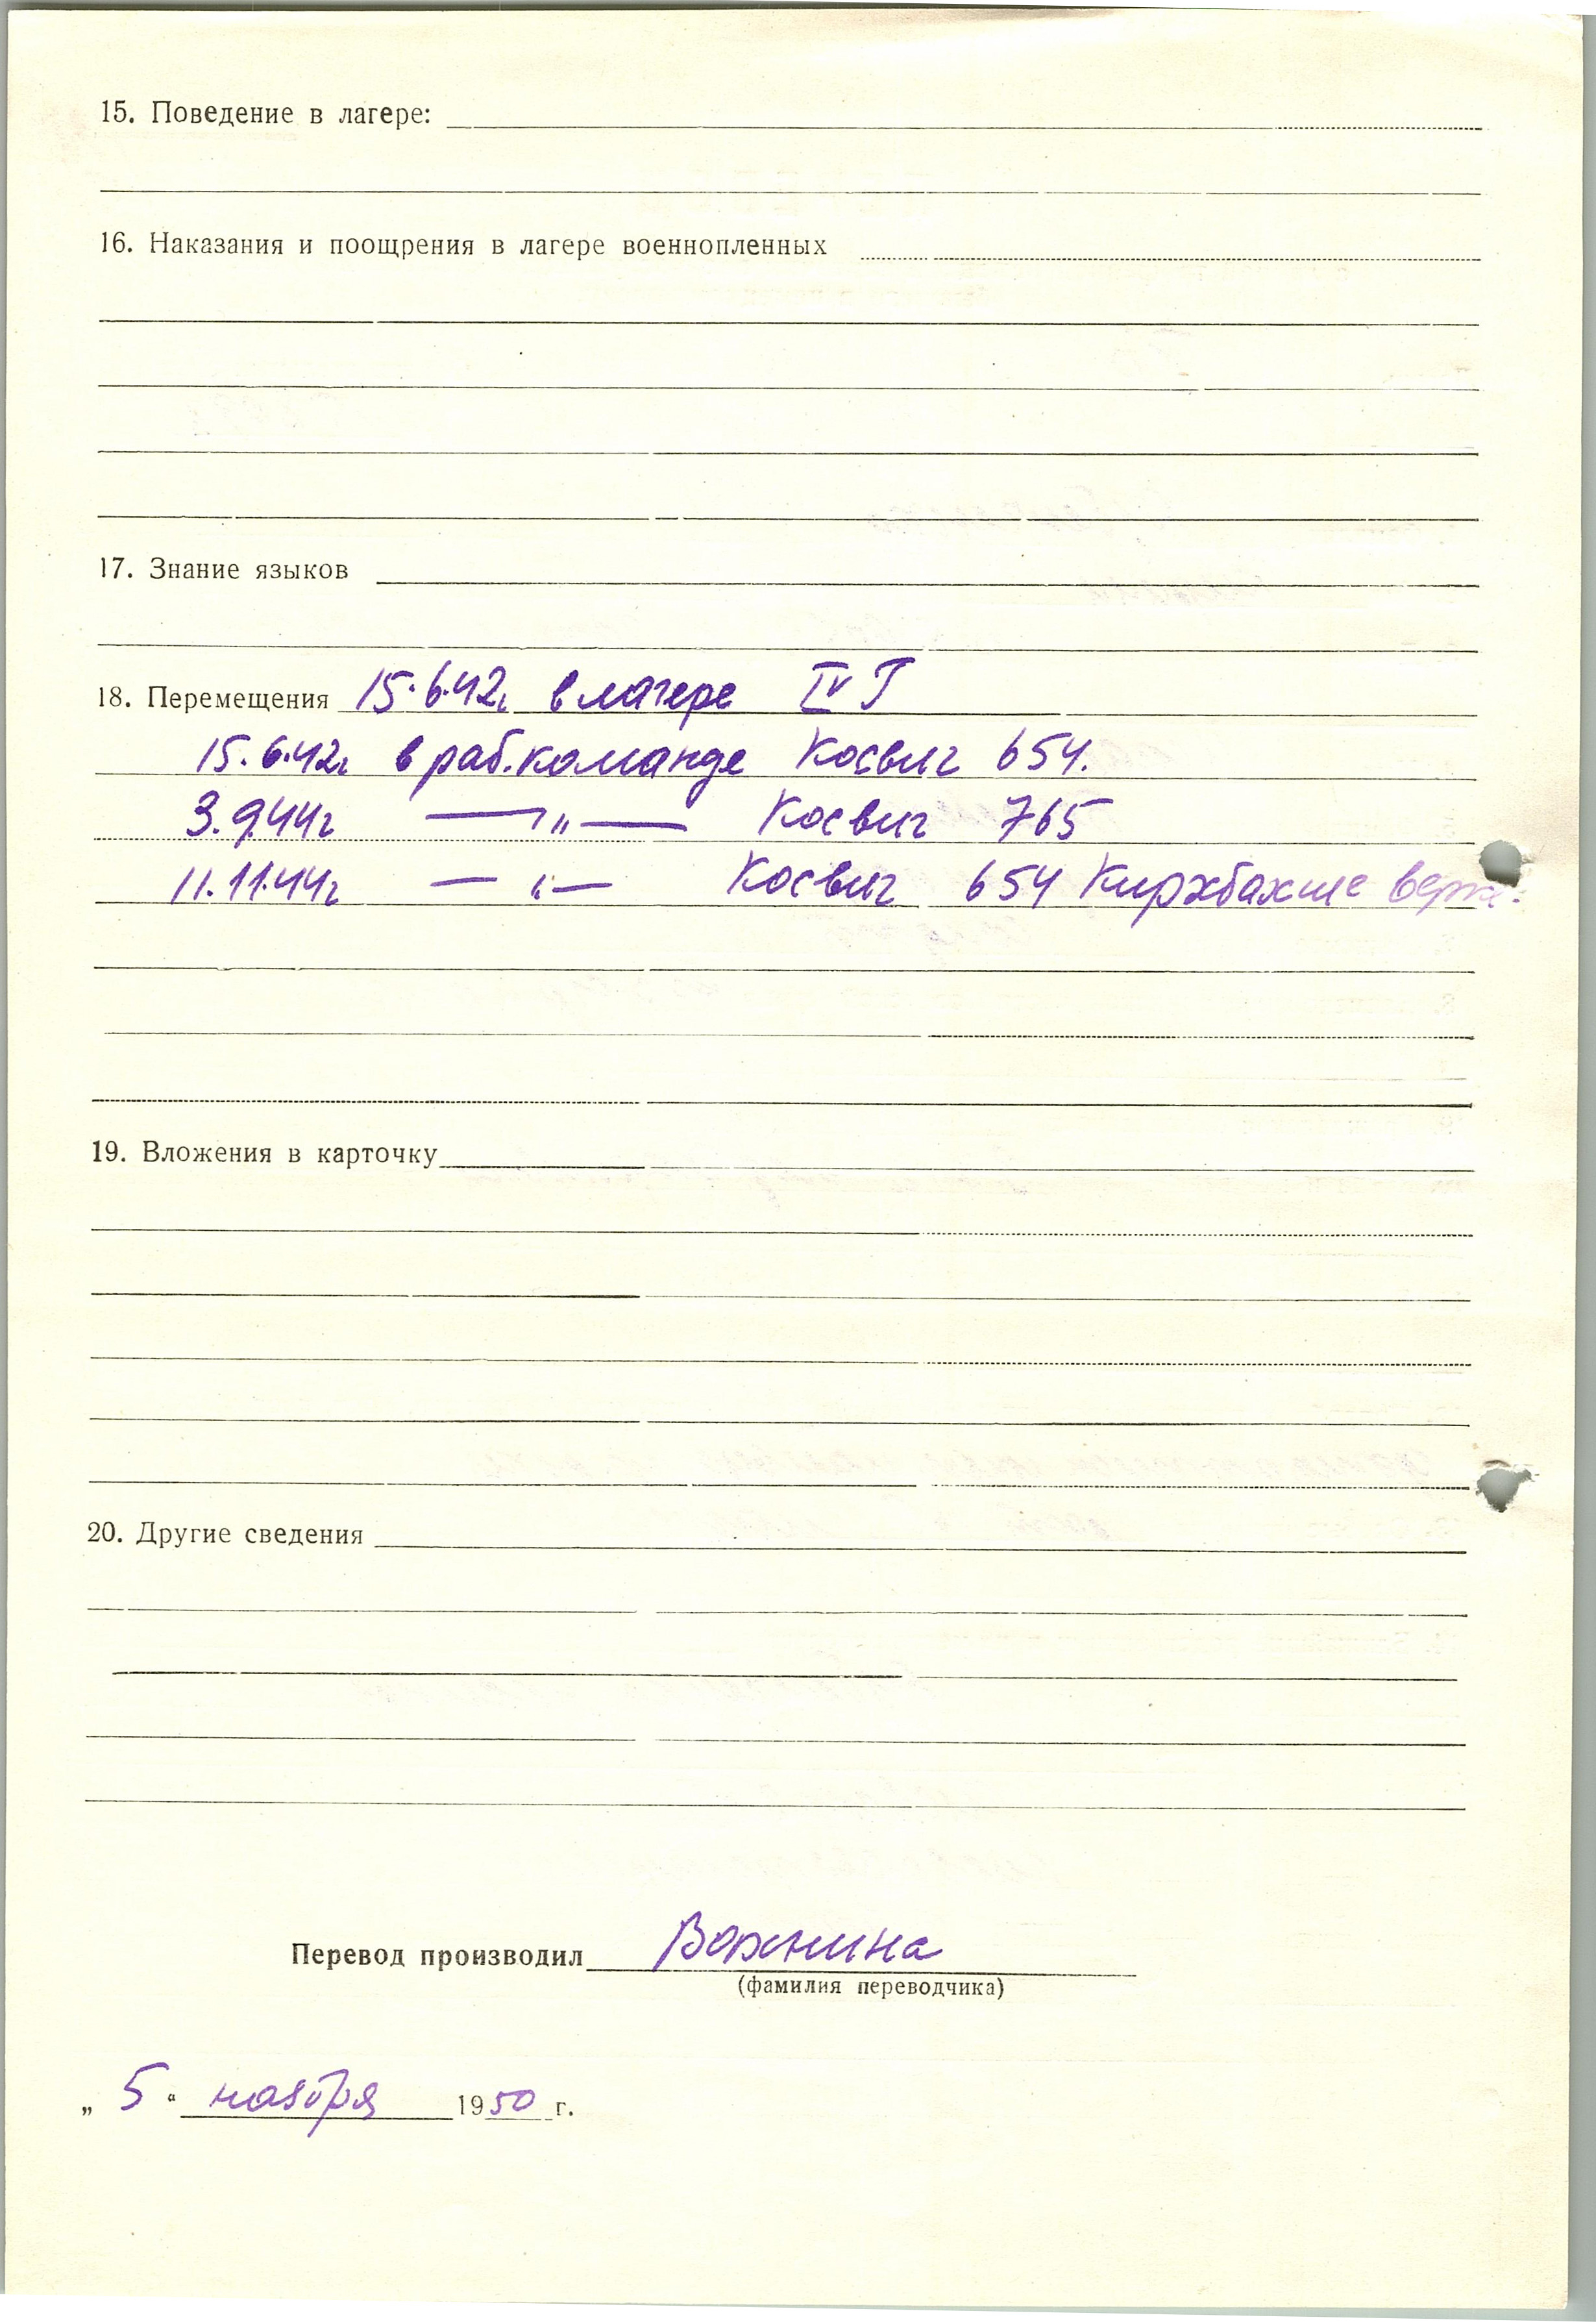 15. Поведение в лагере:
16. Наказания и поощрения в лагере военнопленных
17. Знание языков
18. Перемещения 15.6.42г в лагере IV Г
15.6.42г в раб.команде Косвиг 654.
3.9.44г —"— Косвиг 765
11.11.44г —"— Косвиг 654 Кирхбахше
19. Вложения в карточку
20. Другие сведения
Перевод производил
(фамилия переводчика)
„ 5 “ ноября 1950 г.